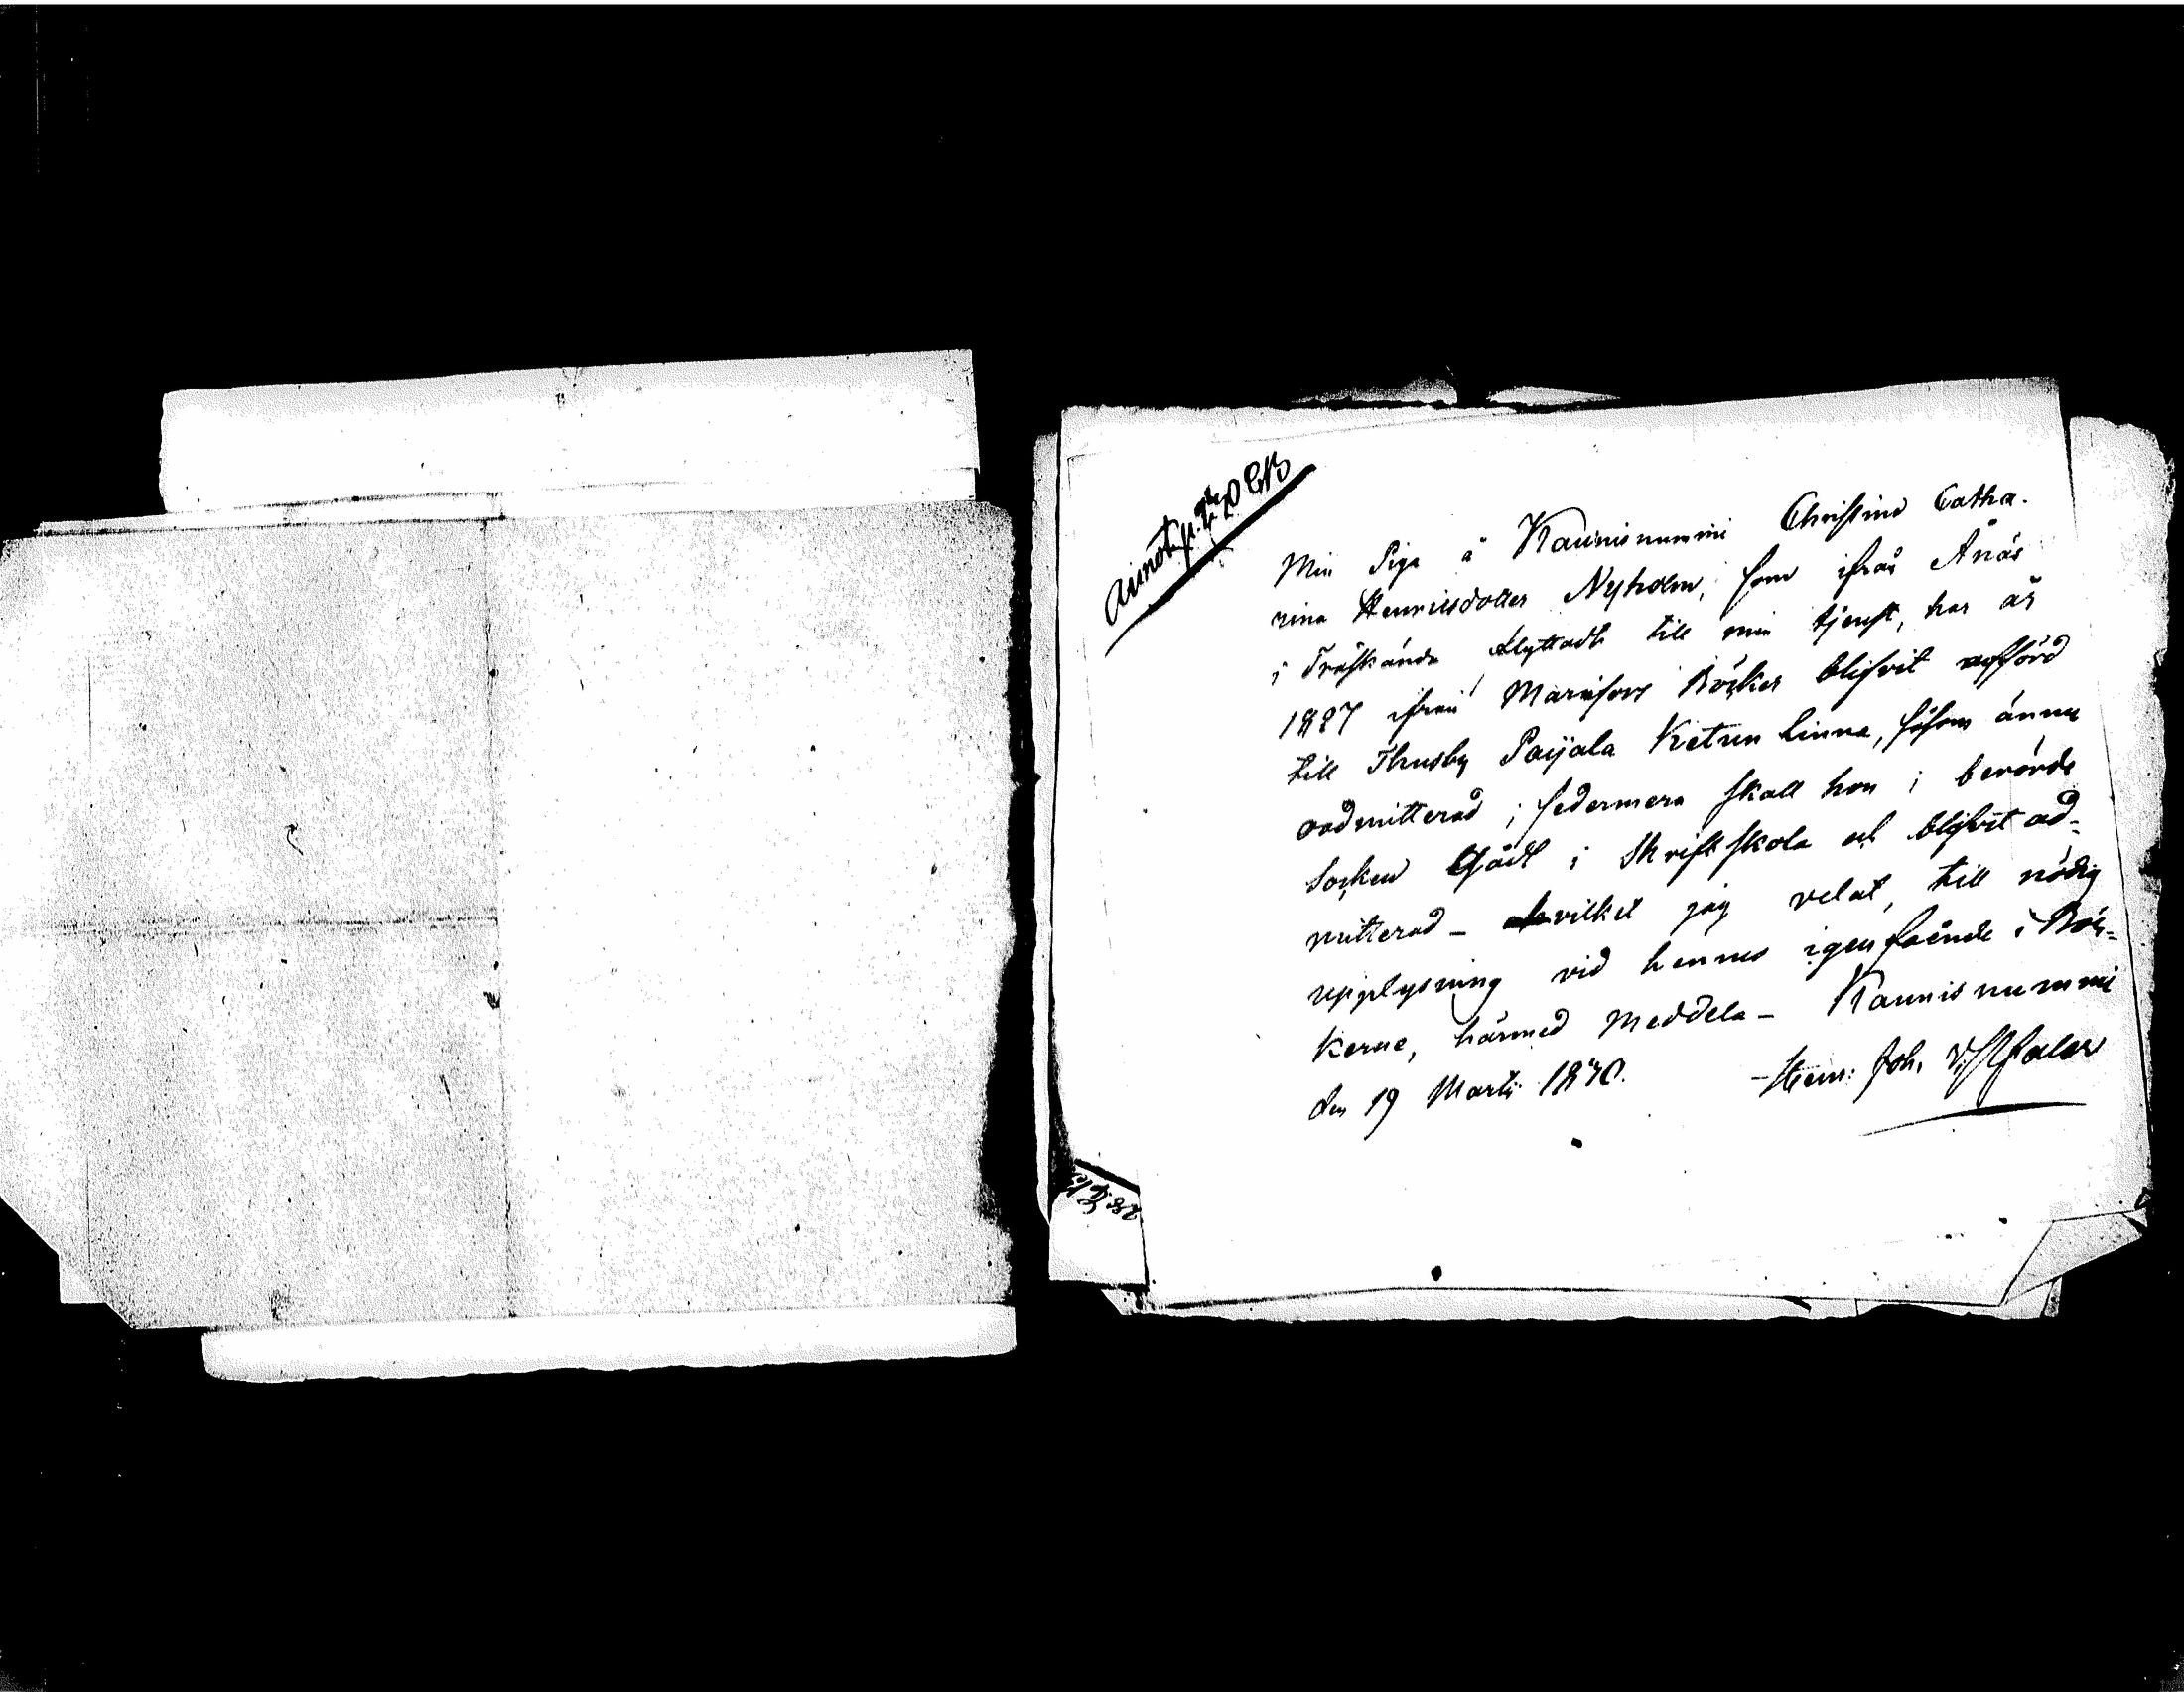 Min Piga å Kaunisnummi Christina Catha-
rina Henricsdotter Nyholm, som ifrån Ånäs
i Träskända flyttadt till min tjenst, har år
1827 ifrån Mariefors Böcker blifvit afförd
till Thusby Paijala Ketun linna, såsom ännu
oadmitterad; sedermera skall hon i berörde
Socken gådt i Skriftskola och blifvit ad-
mitterad - hvilket jag velat, till nödig
upplysning vid hennes igenfående i Böc-
kerne, härmed meddela - Kaunisnummi
den 19 Martii 1840.
Henr: Joh.